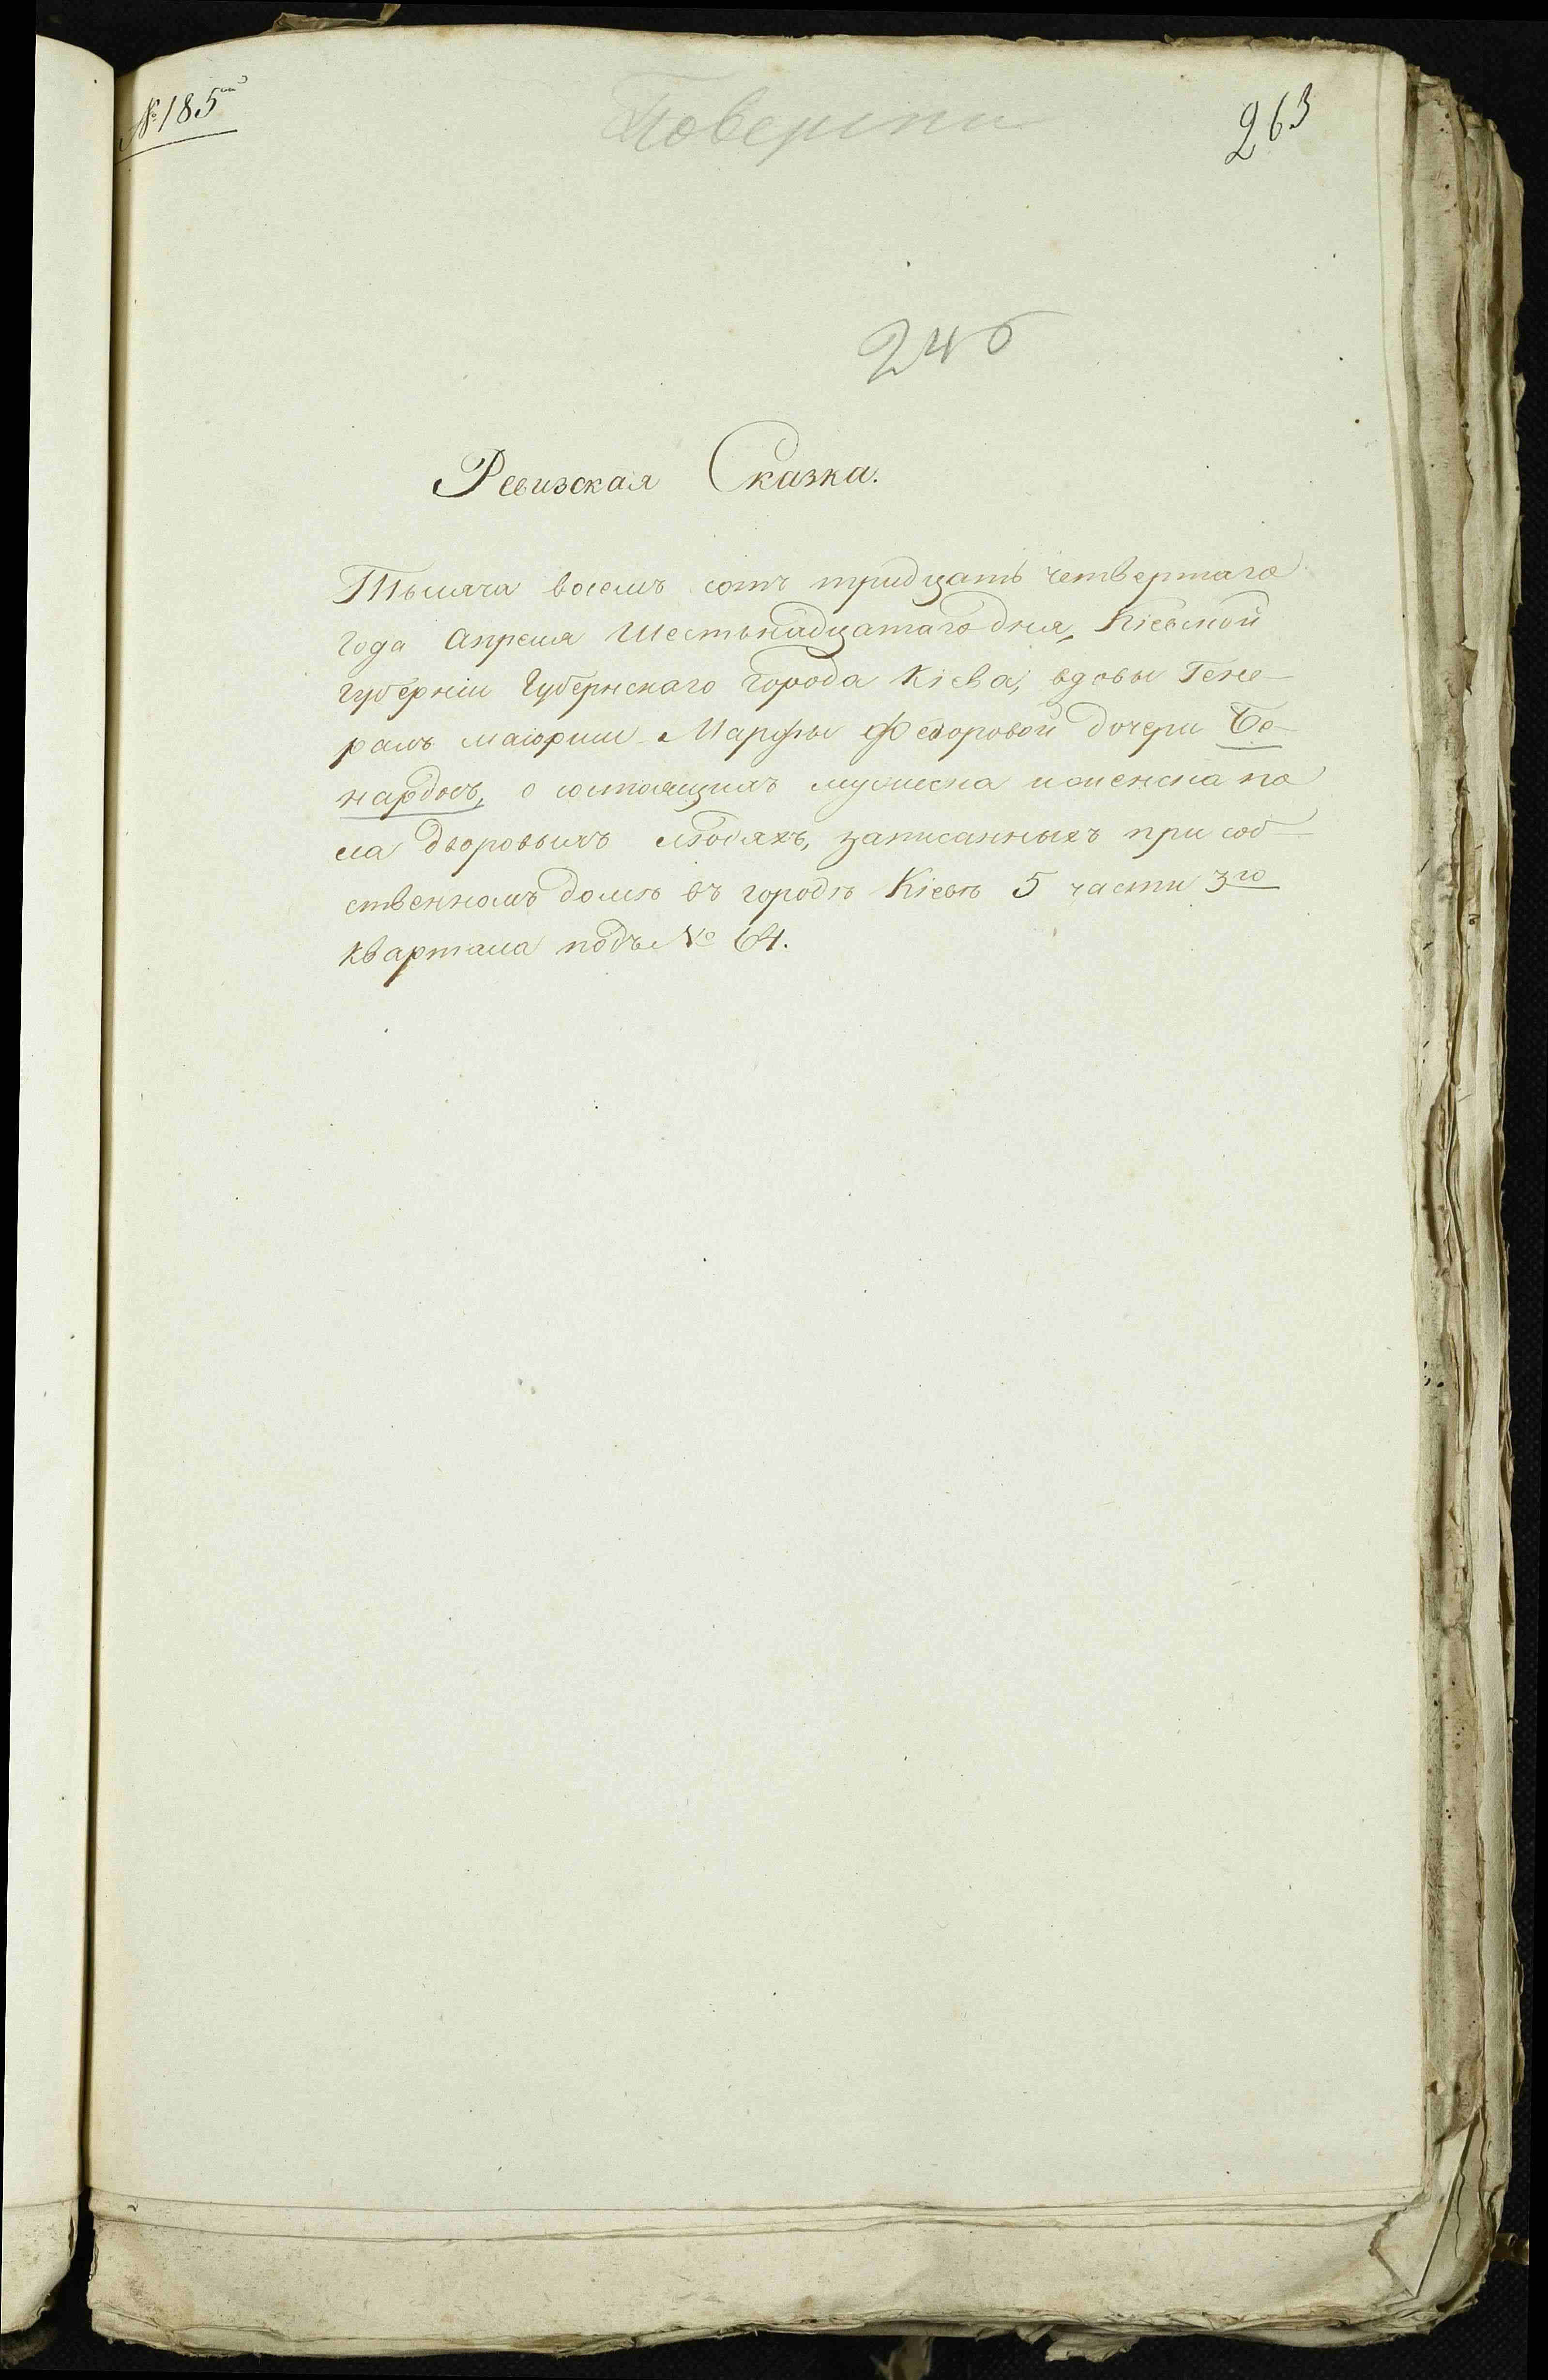 № 185й
263
246
Ревизская Сказка.
Тысяча восемъ сотъ тридцать четвертаго
года Апреля Шестьнадцатаго дня, Кіевской
губерніи Губернскаго города Кіева, вдовы Гене-
ралъ маіорши Марфы Федоровой дочери Бе-
нардосъ, о состоящихъ мужеска и женска по
ла дворовыхъ людяхъ, записанныхъ при соб
ственномъ домѣ въ городѣ Кіевѣ 5 части 3го
квартала подъ № 64.